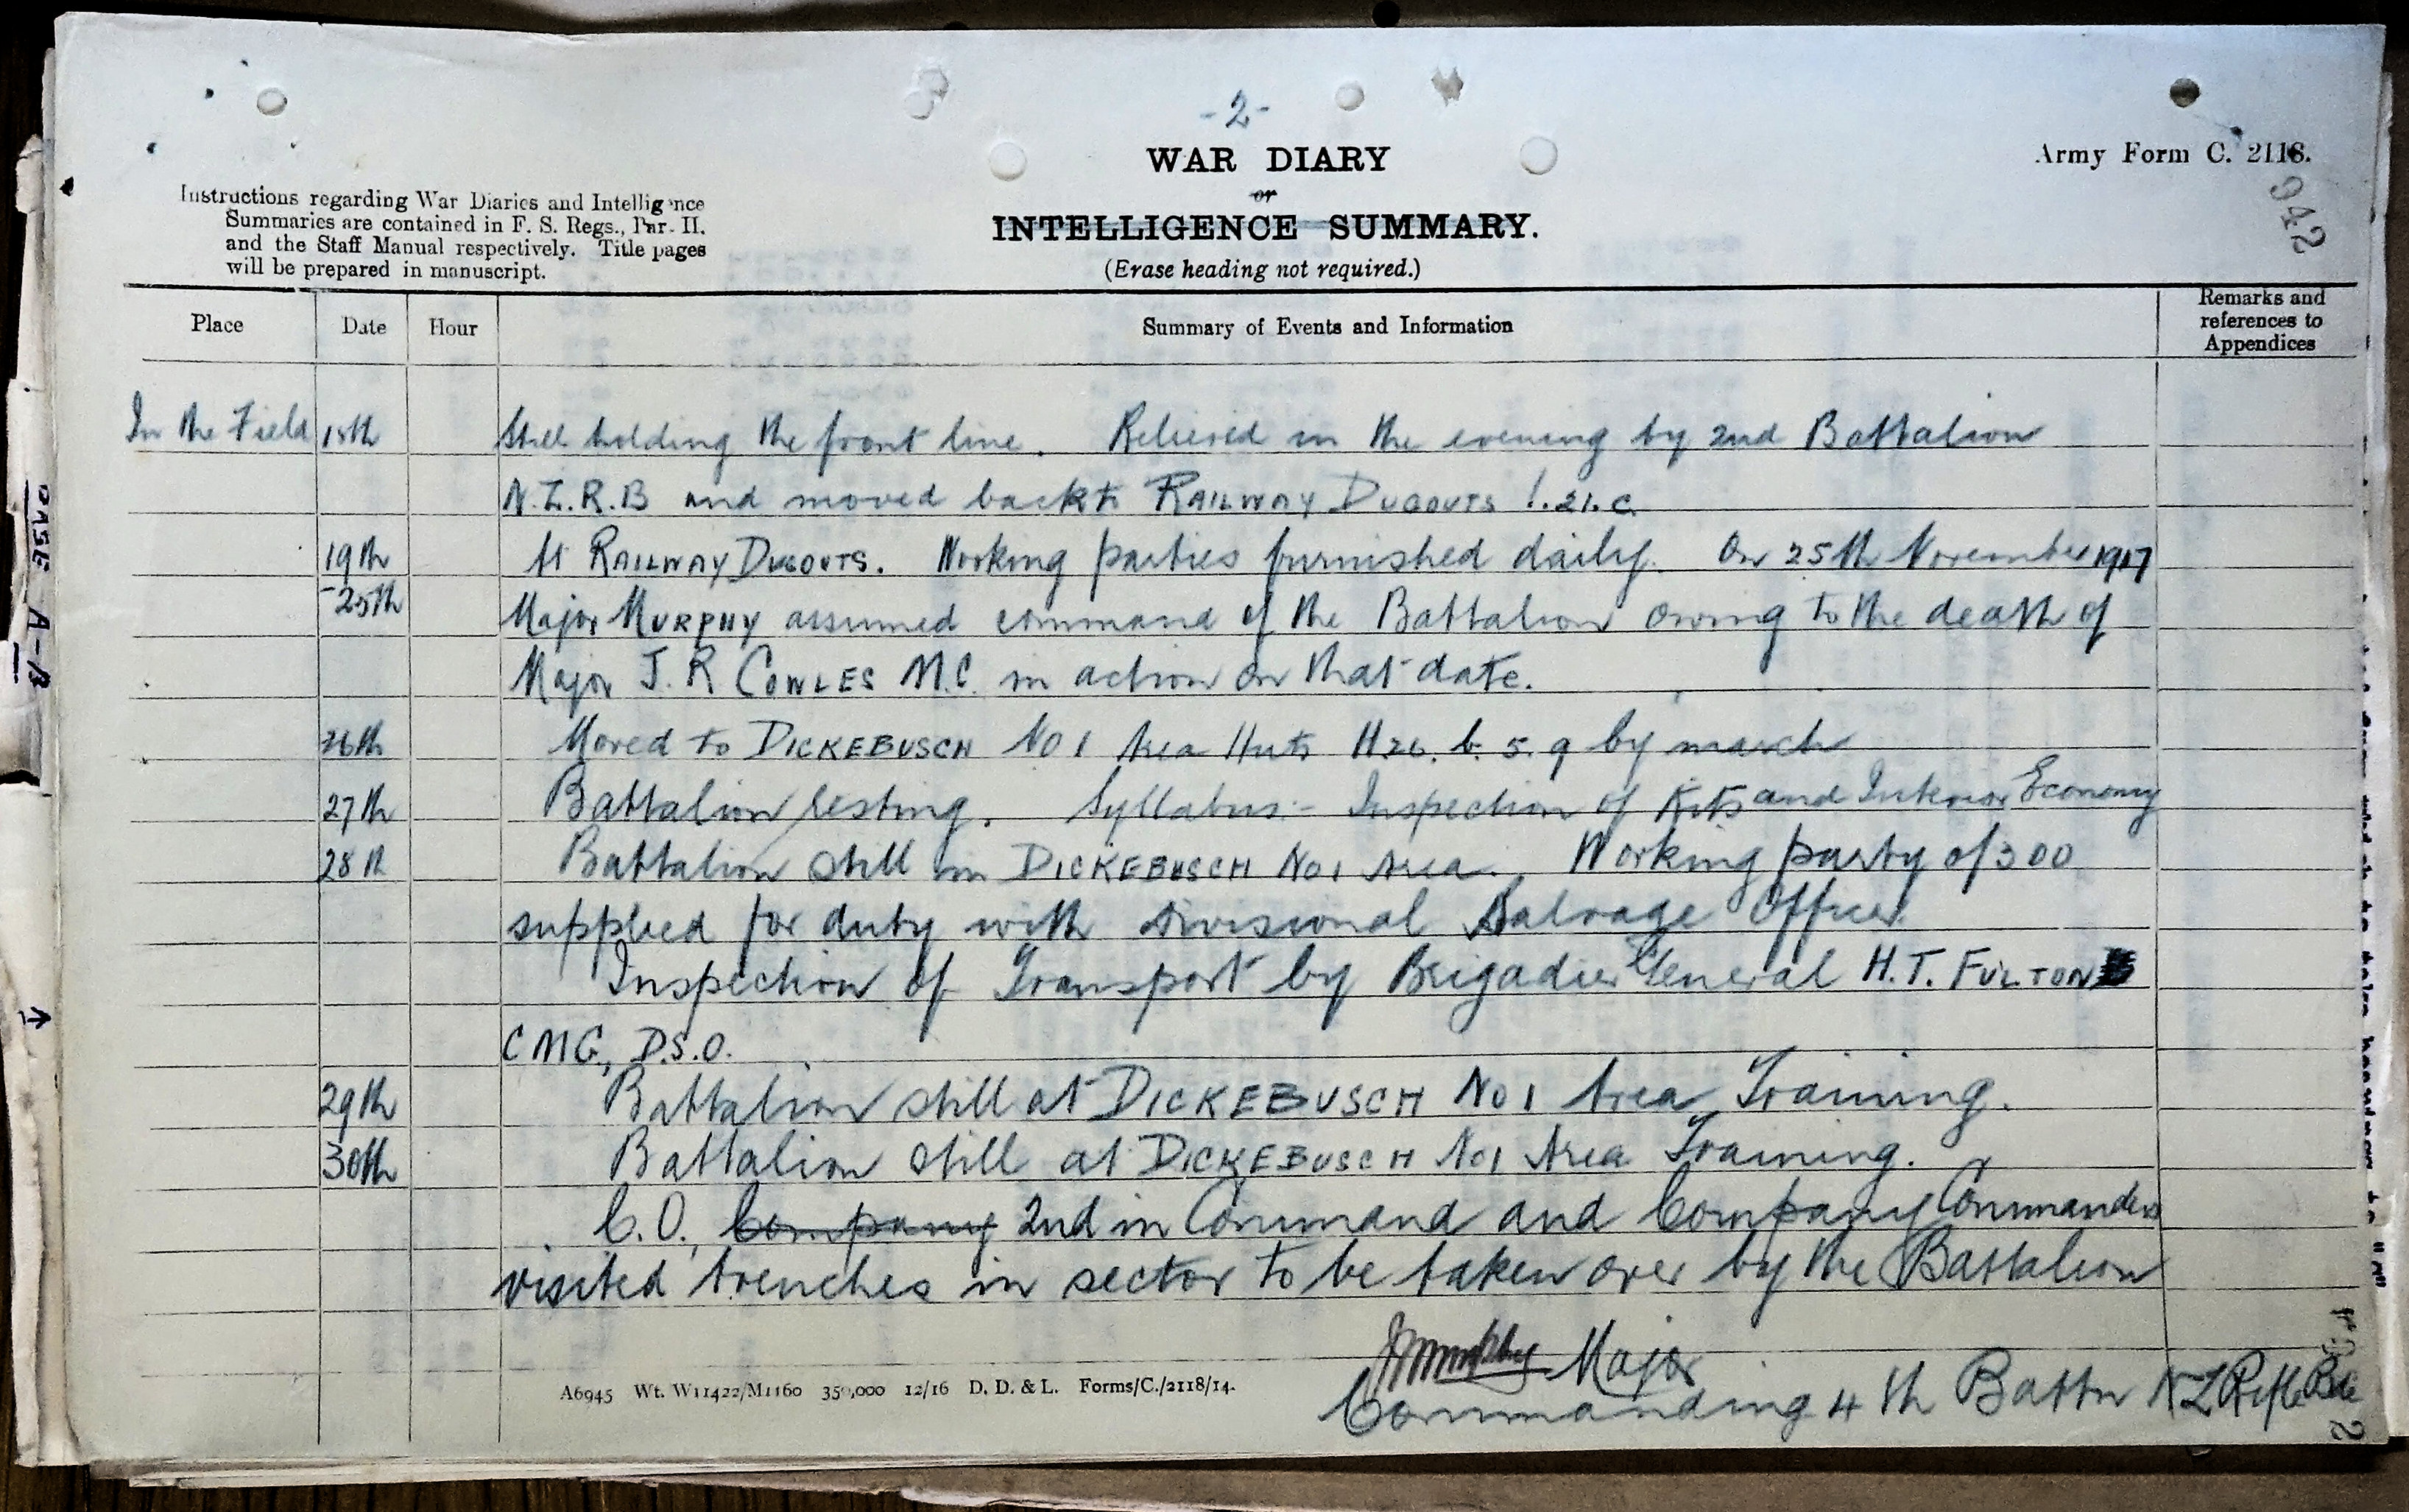 -2-
WAR DIARY
or
INTELLIGENCE SUMMARY.
(Erase heading not required.)
Army Form C. 2118.
942
Instructions regarding War Diaries and Intelligence
Summaries are contained in F. S. Regs., Par. II.
and the Staff Manual respectively. Title pages
will be prepared in manuscript.
Place Date Hour Summary of Events and Information Remarks and references to Appendices
In the Field 18th Still holding the front line. Relieved in the evening by 2nd Battalion
N.Z.R.B and moved back to RAILWAY DUGOUTS I.21.c.
19th At RAILWAY DUGOUTS. Working parties furnished daily. On 25th November 1917
-25th Major MURPHY assumed command of the Battalion owing to the death of
Major J.R COWLES M.C. in action on that date.
26th Moved to DICKEBUSCH No 1 Area Huts H.26.b.5.9 by march
27th Battalion resting. Syllabus:- Inspection of Kits and Interior Economy
28th Battalion still in DICKEBUSCH No 1 Area. Working party of 300
supplied for duty with Divisional Salvage Officer
Inspection of Transport by Brigadier General H.T. FULTON
CMG, D.S.O.
29th Battalion still at DICKEBUSCH No 1 Area Training.
30th Battalion still at DICKEBUSCH No 1 Area Training.
C.O., Company 2nd in Command and Company Commanders
visited trenches in sector to be taken over by the Battalion
Murphy Major
Commanding 4th Battn NZ Rifle Bde
A6945 Wt. W11422/M1160 350,000 12/16 D. D. & L. Forms/C./2118/14.
2